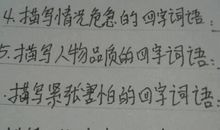 4.描写情况危急的四字词语:
5.描写人物品质的四字词语:
.描写紧张害怕的四字词语: